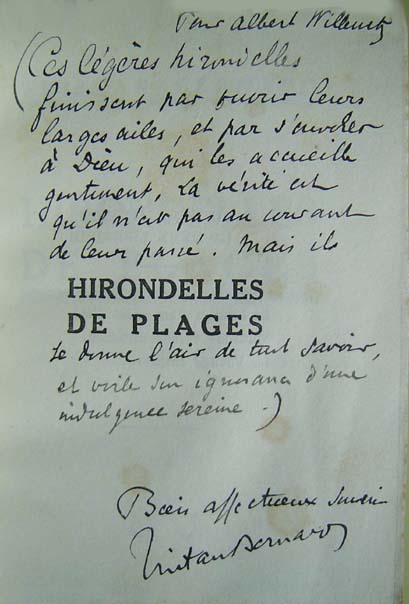 Pour Albert Willemetz
(Ces légères hirondelles
finissent par ouvrir leurs
larges ailes, et par s'envoler
à Dieu, qui les accueille
gentiment. La vérité est
qu'il n'est pas au courant
de leur passé. Mais il
HIRONDELLES
DE PLAGES
se donne l'air de tout savoir,
et voile son ignorance d'une
indulgence sereine.)
Bien affectueux souvenir
Tristan Bernard